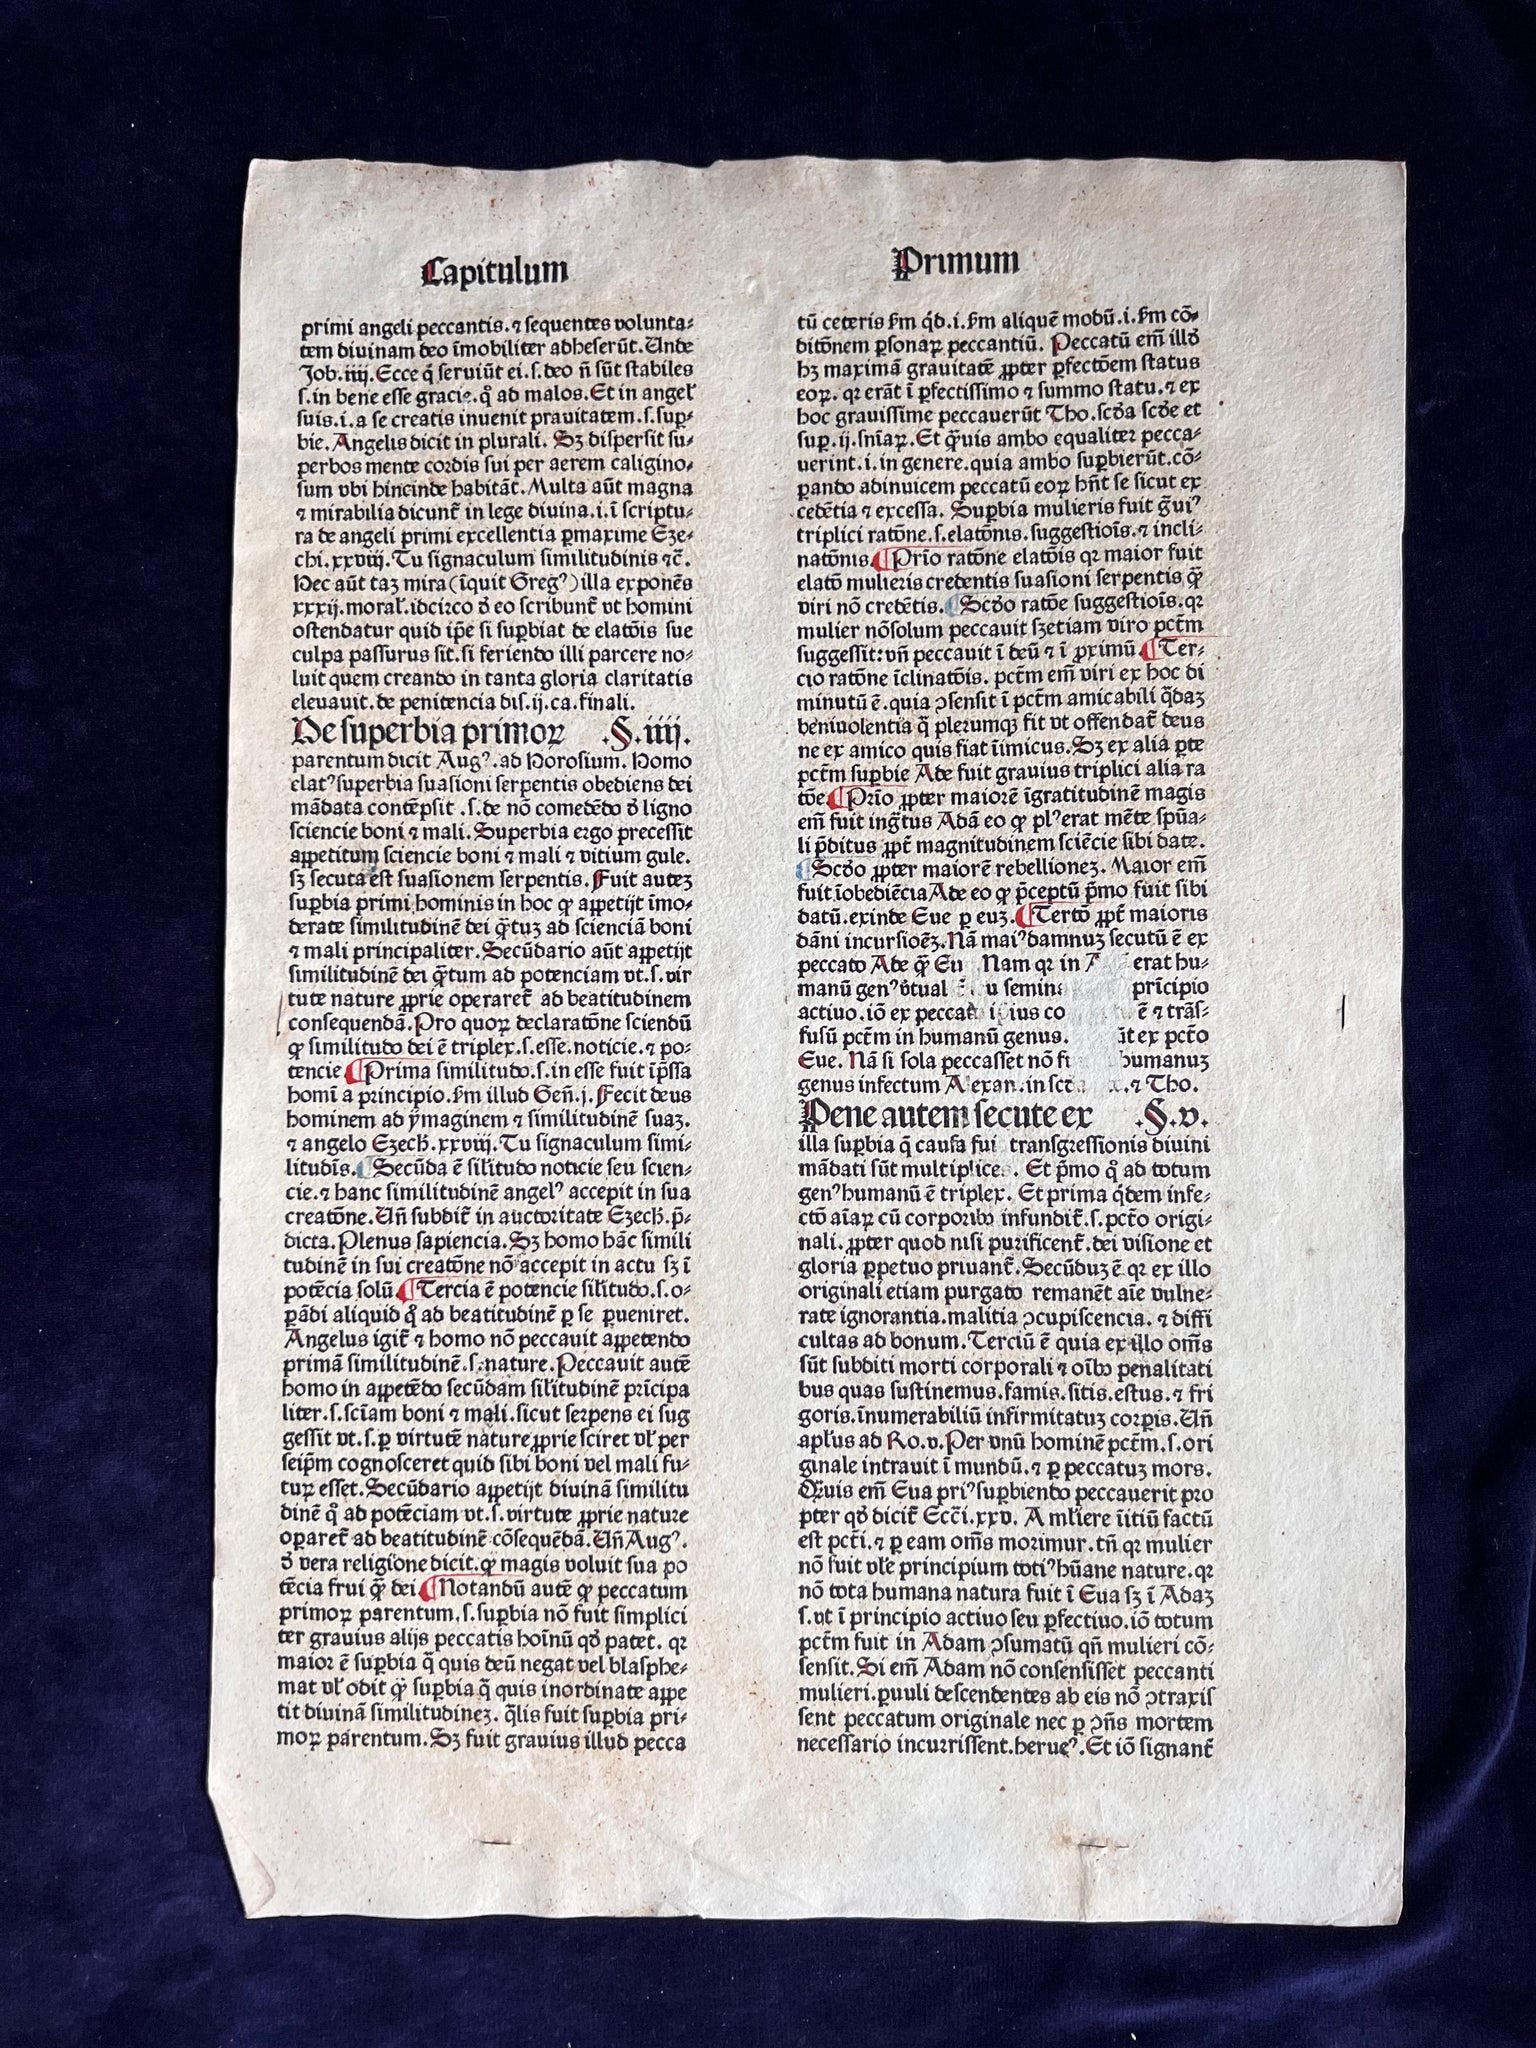 Capitulum
primi angeli peccantis.⁊ sequentes volunta⸗
tem diuinam deo īmobiliter adheserūt.Unde
Job.iiij.Ecce q̄ seruiūt ei.s.deo n̄ sūt stabiles
s.in bene esse gracie.qͦ ad malos.Et in angeł
suis.i.a se creatis inuenit prauitatem.s.suꝑ⸗
bie.Angelis dicit in plurali. Sꝫ dispersit su⸗
perbos mente cordis sui per aerem caligino⸗
sum vbi hincinde habitāt.Multa aūt magna
⁊ mirabilia dicunt̄ in lege diuina.i.ī scriptu⸗
ra de angeli primi excellentia ꝑmaxime Eze⸗
chi.xxviij.Tu signaculum similitudinis ⁊c̄.
Hec aūt taꝫ mira (īquit Gregꝰ) illa exponēs
xxxij.morał.idcirco ꝺ̄ eo scribunt̄ vt homini
ostendatur quid ip̄e si suꝑbiat de elatōis sue
culpa passurus sit.si feriendo illi parcere no⸗
luit quem creando in tanta gloria claritatis
eleuauit.de penitencia dis.ij.ca.finali.
De superbia primoꝝ .§.iiij.
parentum dicit Augꝰ.ad Horosium. Homo
elatꝰ superbia suasioni serpentis obediens dei
mādata contēpsit .s.de nō comedēdo ꝺ̄ ligno
sciencie boni ⁊ mali. Superbia ergo precessit
appetitum sciencie boni ⁊ mali ⁊ vitium gule.
sꝫ secuta est suasionem serpentis. Fuit auteꝫ
suꝑbia primi hominis in hoc ꝙ appetijt īmo⸗
derate similitudinē dei q̄tuꝫ ad scienciā boni
⁊ mali principaliter. Secūdario aūt appetijt
similitudinē dei q̄tum ad potenciam vt.s.vir
tute nature ꝓprie operaret̄ ad beatitudinem
consequendā.Pro quoꝝ declaratōne sciendū
ꝙ similitudo dei ē triplex.s.esse.noticie.⁊ po⸗
tencie ¶Prima similitudo.s.in esse fuit īp̄ssa
homī a principio.s̄m illud Gen̄.j.Fecit deus
hominem ad ẏmaginem ⁊ similitudinē suaꝫ.
⁊ angelo Ezech.xxviij.Tu signaculum simi⸗
litudīs. ¶Secūda ē sil̄itudo noticie seu scien⸗
cie.⁊ hanc similitudinē angelꝰ accepit in sua
creatōne.Un̄ subdit̄ in auctoritate Ezech.p̄⸗
dicta.Plenus sapiencia.Sꝫ homo hāc simili
tudinē in sui creatōne nō accepit in actu sꝫ ī
potēcia solū ¶Tercia ē potencie sil̄itudo.s.o⸗
ꝑādi aliquid qͦ ad beatitudinē ꝑ se ꝑueniret.
Angelus igit̄ ⁊ homo nō peccauit appetendo
primā similitudinē.s.nature.Peccauit autē
homo in appetēdo secūdam sil̄itudinē prīcipa
liter.s.scīam boni ⁊ mali.sicut serpens ei sug
gessit vt.s.ꝑ virtutē nature ꝓprie sciret vł per
seip̄m cognosceret quid sibi boni vel mali fu⸗
tuꝝ esset.Secūdario appetijt diuinā similitu
dinē qͦ ad potēciam vt.s.virtute ꝓprie nature
oꝑaret̄ ad beatitudinē cōsequēdā.Un̄ Augꝰ.
ꝺ̄ vera religiōe dicit.ꝙ magis voluit sua po
tēcia frui q̄ dei ¶Notandū autē ꝙ peccatum
primoꝝ parentum.s.suꝑbia nō fuit simplici
ter grauius alijs peccatis hoīnū qd̄ patet. qꝛ
maior ē suꝑbia q̄ quis deū negat vel blasphe⸗
mat vł odit ꝙ̄ suꝑbia q̄ quis inordinate appe
tit diuinā similitudineꝫ. q̄lis fuit suꝑbia pri⸗
moꝝ parentum.Sꝫ fuit grauius illud pecca
Primum
tū ceteris s̄m qͥd.i.s̄m aliquē modū.i.s̄m cō⸗
ditōnem ꝑsonaꝝ peccantiū. Peccatū em̄ illoꝝ
hꝫ maximā grauitatē ꝓpter ꝑfectōem status
eoꝝ. qꝛ erāt ī ꝑfectissimo ⁊ summo statu.⁊ ex
hoc grauissime peccauerūt Tho.scd̄a scd̄e et
suꝑ.ij.sniāꝝ. Et q̄uis ambo equaliter pecca⸗
uerint.i.in genere.quia ambo suꝑbierūt.cō⸗
ꝑando adinuicem peccatū eoꝝ hn̄t se sicut ex
cedētia ⁊ excessa. Suꝑbia mulieris fuit ḡuiꝰ
triplici ratōne.s.elatōnis.suggestiōis.⁊ incli⸗
natōnis. ¶Prīo ratōne elatōis qꝛ maior fuit
elatō mulieris credentis suasioni serpentis ꝙ̄
viri nō credētis. ¶Scd̄o ratōe suggestiōis.qꝛ
mulier nōsolum peccauit sꝫetiam viro pct̄m
suggessit:vn̄ peccauit ī deū ⁊ ī ꝓximū ¶Ter⸗
cio ratōne īclinatōis. pct̄m em̄ viri ex hoc di
minutū ē.quia ꝯsensit ī pct̄m amicabili q̄daꝫ
beniuolentia q̄ plerumqꝫ fit vt offendat̄ deus
ne ex amico quis fiat īimicus.Sꝫ ex alia ꝑte
pct̄m suꝑbie Ade fuit grauius triplici alia ra
tōe ¶Prīo ꝓpter maiorē īgratitudinē magis
em̄ fuit inḡtus Adā eo ꝙ plꝰ erat mēte spūa⸗
li p̄ditus ꝓpt̄ magnitudinem sciēcie sibi date.
¶Scd̄o ꝓpter maiorē rebellioneꝫ. Maior em̄
fuit īobediēcia Ade eo ꝙ p̄ceptū p̄mo fuit sibi
datū.exinde Eue ꝑ euꝫ. ¶Tertō ꝓpt̄ maioris
dāni incursiōeꝫ.Nā maiꝰ damnuꝫ secutū ē ex
peccato Ade ꝙ̄ Eu Nam qꝛ in A erat hu⸗
manū genꝰ u prīcipio
actiuo.iō ex peccat ipius co ē ⁊ trās⸗
fusū pct̄m in humanū genus. ūt ex pct̄o
Eue. Nā si sola peccasset nō humanuꝫ
genus infectum Alexan.in ⁊ Tho.
Pene autem secute ex .§.v.
illa suꝑbia q̄ causa fui transgressionis diuini
mādati sūt multiplice. Et p̄mo qͦ ad totum
genꝰ humanū ē triplex. Et prima qͥdem infe⸗
ctō aīaꝝ cū corporibꝰ infundit̄.s.pct̄o origi⸗
nali.ꝓpter quod nisi purificent̄.dei visione et
gloria ꝑpetuo priuant̄.Secūduꝫ ē.qꝛ ex illo
originali etiam purgato remanēt aīe vulne⸗
rate ignorantia.malitia ꝯcupiscencia.⁊ diffi
cultas ad bonum.Terciū ē quia ex illo om̄s
sūt subditi morti corporali ⁊ oībꝰ penalitati
bus quas sustinemus.famis.sitis.estus.⁊ fri
goris.īnumerabiliū infirmitatuꝫ corꝑis.Un̄
apłus ad Ro.v.Per vnū hominē pct̄m.s.ori
ginale intrauit ī mundū.⁊ ꝑ peccatuꝫ mors.
Q̄uis em̄ Eua priꝰ suꝑbiendo peccauerit pro
pter qd̄ dicit̄ Ecc̄i.xxv. A mł̄iere īitiū factū
est pct̄i.⁊ ꝑ eam om̄s morimur.tn̄ qꝛ mulier
nō fuit vł̄e principium totiꝰ hūane nature.qꝛ
nō tota humana natura fuit ī Eua sꝫ ī Adaꝫ
s.vt ī principio actiuo seu ꝑfectiuo.iō totum
pct̄m fuit in Adam ꝯsumatū qn̄ mulieri cō⸗
sensit.Si em̄ Adam nō consensisset peccanti
mulieri.ꝑuuli descendentes ab eis nō ꝯtraxis
sent peccatum originale nec ꝑ ꝯn̄s mortem
necessario incurrissent.herueꝰ.Et iō signant̄